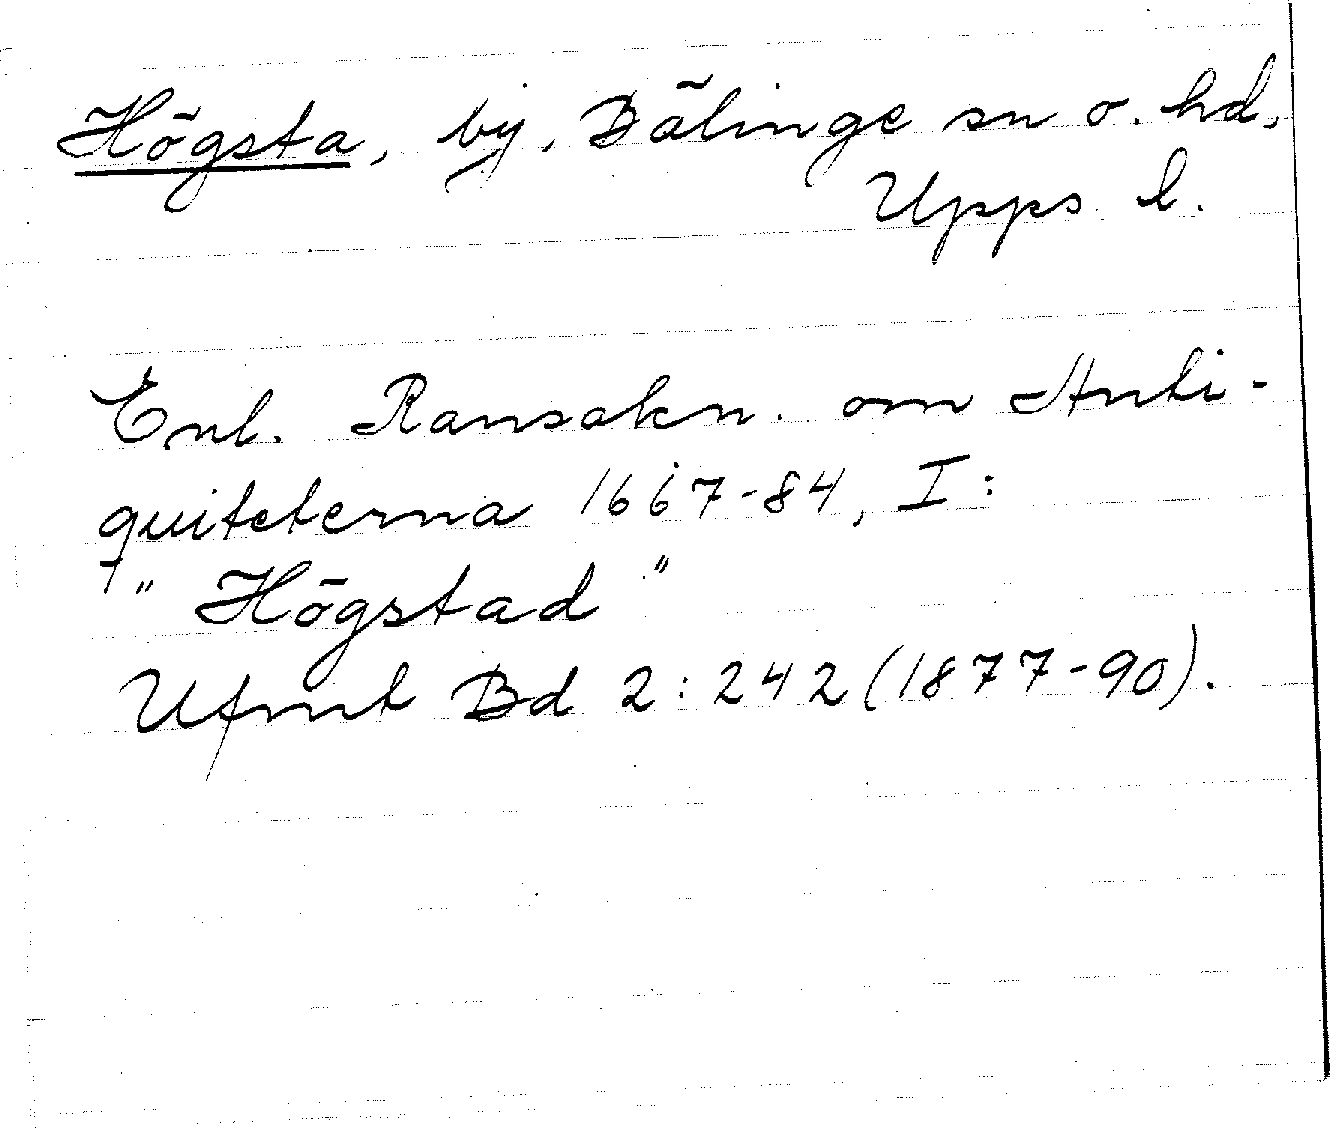 Högsta, by, Bälinge sn o. hd,
Upps. l.
Enl. Ransakn. om Anti-
quiteterna 1667-84, I:
"Högstad"
Ufmt Bd 2:242 (1877-90).